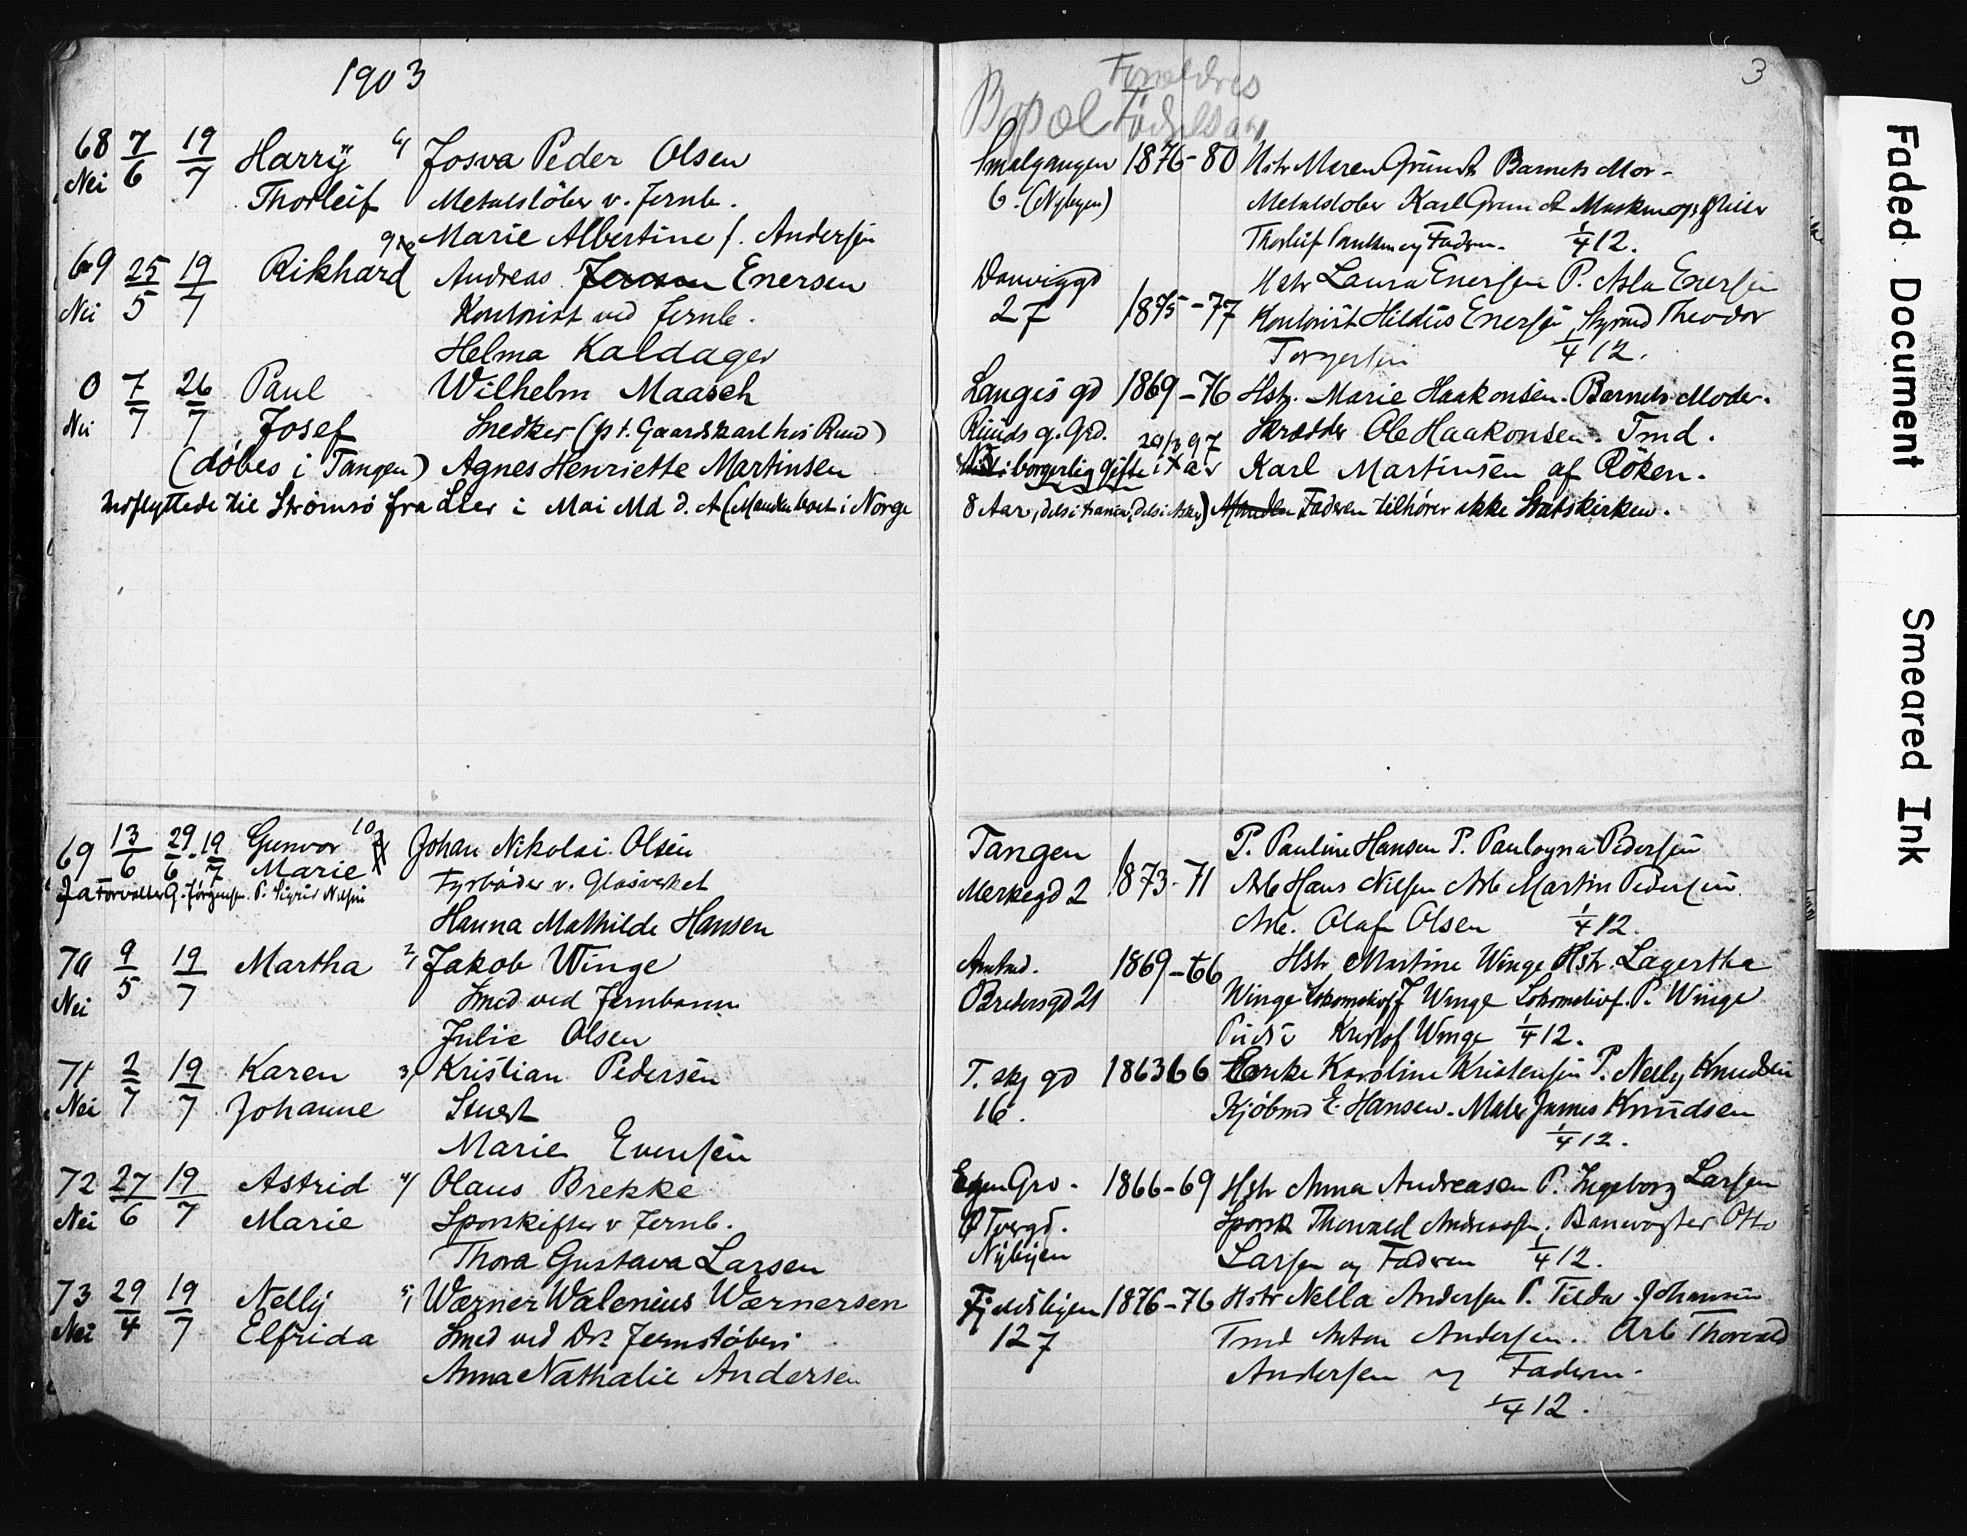 1903
3
Forældres
Bopæl Fødselsaar
68 7/6 19/7 Harry 6/ Josva Peder Olsen Smalgangen 1876-80 Hstr Maren Grundt Barnets Mor -
Nei Thorleif Metalstöber v. Jernb. 6. (Nybyen) Metalstöber Karl Grundt
Marie Albertine f. Andersen Thorleif Paulsen og Faderen. 1/4 12.
69 25/5 19/7 Rikhard Andreas Jensen Enersen Danviggd Hstr Laura Enersen P. Asla Enersen
Nei Kontorist ved Jernb. 27 1875-77 Kontorist Hildus Enersen, Styrmd Theodor
Helma Kaldager Torgersen 1/4 12.
0 7/7 26/7 Paul Wilhelm Maasch Langes gd 1869-76 Hstr. Marie Haakonsen. Barnets Moder.
Nei Josef Snedker (p t. Gaardskarl hos Ruud) Ruuds g. Grd. 29/3 97 Skrædder Ole Haakonsen. Tmd.
(döbes i Tangen) Agnes Henriette Martinsen borgerlig gifte Karl Martinsen af Röken.
Indflyttede til Strømsø fra Lier i Mai Md d. A (Manden boet i Norge 8 Aar, dels i dels i Asker) Manden Faderen tilhører ikke Statskirken.
69 13/6 29/6 - 19/7 Gunvor 10 Johan Nikolai Olsen Tangen P. Pauline Hansen P. Paulogna Pedersen
Marie Fyrböder v. Glasverket Merkegd 2 1873-71 Arb Hans Nilsen Arb Martin Pedersen
Ja Forvalter G. Jörgensen. P. Sigrid Nilsen
Hanna Mathilde Hansen Arb. Olaf Olsen 1/4 12.
70 9/5 19/7 Martha 2/ Jakob Winge 1869-66 Hstr Martine Winge Hstr. Lagertha
Nei Smed ved Jernbanen Bredersgd 21 Winge Lokomotivf J Winge Lokomotivf. P. Winge
Julie Olsen Kristof Winge 1/4 12.
71 2/7 19/7 Karen 3/ Kristian Pedersen T. sky gd 1863 66 Enke Karoline Kristensen P. Nelly Knudsen
Nei Johanne Stuert 16. Kjöbmd E. Hansen. Maler James Knudsen
Marie Evensen 1/4 12.
72 27/6 19/7 Astrid 4/ Olaus Brekke Egen Grd. 1866-69 Hstr Anna Andreasen P. Ingeborg Larsen
Nei Marie Sporskifter v Jernb. Ø Tvergd. Sporsk Thorvald Andreassen. Banevogter Otto
Thora Gustava Larsen Nybyen Larsen og Faderen 1/4 12.
73 29/4 19/7 Nelly 5/ Wærner Walenius Wærnersen Fjeldsbyen 1876-76 Hstr Nella Andersen P. Tilda Johansen
Nei Elfrida Smed ved Drs Jernstöberi 127 Tmd Anton Andersen. Arb Thorvald
Anna Nathalie Andersen Andersen og Faderen.
1/4 12.
Faded Document
Smeared Ink